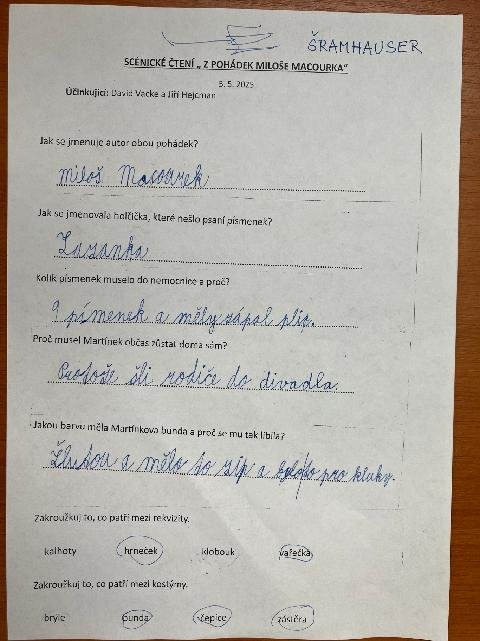 ŠRAMHAUSER
SCÉNICKÉ ČTENÍ „ Z POHÁDEK MILOŠE MACOURKA“
5. 5. 2025
Účinkující: David Vacke a Jiří Hejcman
Jak se jmenuje autor obou pohádek?
Miloš Macourek
Jak se jmenovala holčička, které nešlo psaní písmenek?
Zuzanka
Kolik písmenek muselo do nemocnice a proč?
9 písmenek a měly zápal plic.
Proč musel Martínek občas zůstat doma sám?
Protože šli rodiče do divadla.
Jakou barvu měla Martínkova bunda a proč se mu tak líbila?
Žlutou a mělo to zip a bylo to pro kluky.
Zakroužkuj to, co patří mezi rekvizity.
kalhoty hrneček klobouk vařečka
Zakroužkuj to, co patří mezi kostýmy.
brýle bunda čepice zástěra